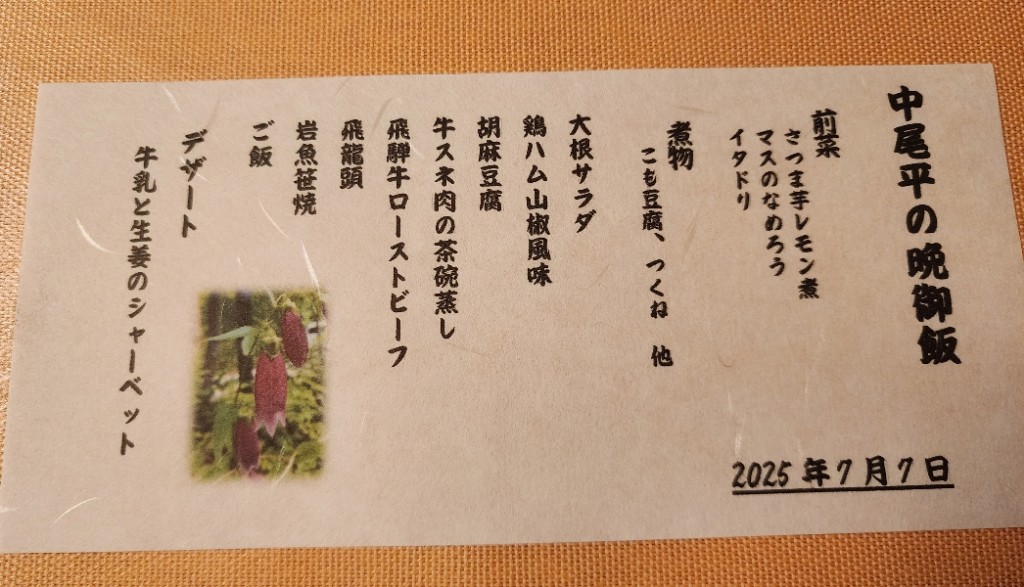 中尾平の晩御飯
前菜
さつま芋レモン煮
マスのなめろう
イタドリ
煮物
こも豆腐、つくね 他
大根サラダ
鶏ハム山椒風味
胡麻豆腐
牛スネ肉の茶碗蒸し
飛騨牛ローストビーフ
飛龍頭
岩魚笹焼
ご飯
デザート
牛乳と生姜のシャーベット
2025年7月7日